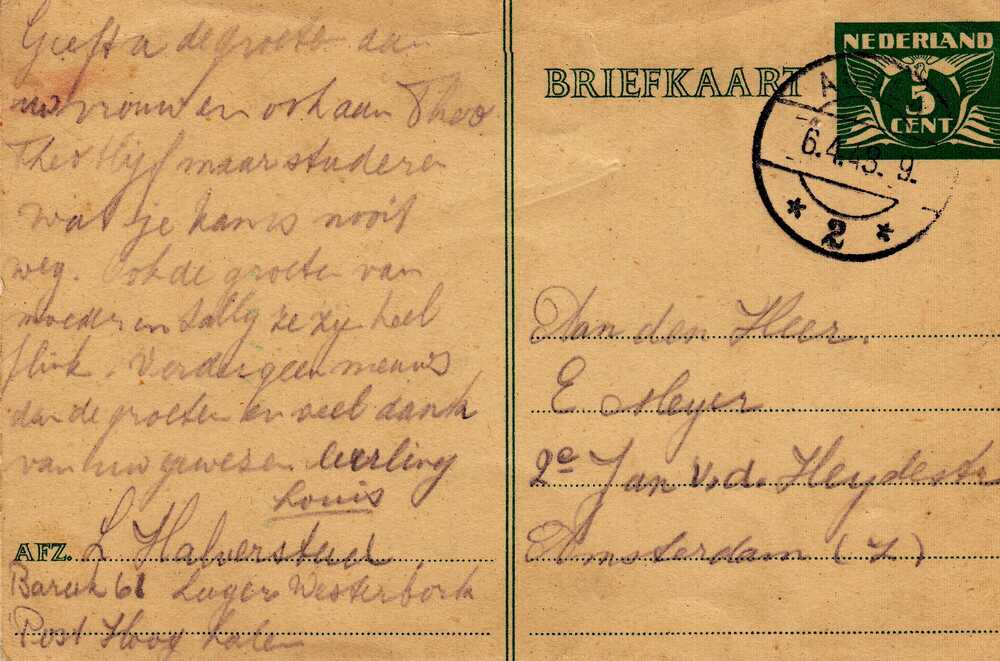 Geeft u de groeten aan
uw vrouw en ook aan Theo
Theo blijf maar studeren
wat je kan is nooit
weg. Ook de groeten van
moeder en Sally ze zijn heel
flink. Verder geen nieuws
dan de groeten en veel dank
van uw gewesen leerling
Louis
AFZ. L Halverstad
Barak 61 Lager Westerbork
Post Hooghalen
BRIEFKAART
NEDERLAND
5
CENT
6.4.43. 9.
* 2 *
Aan den Heer.
E Meyer
2e Jan v.d. Heydestr
Amsterdam (Z.)